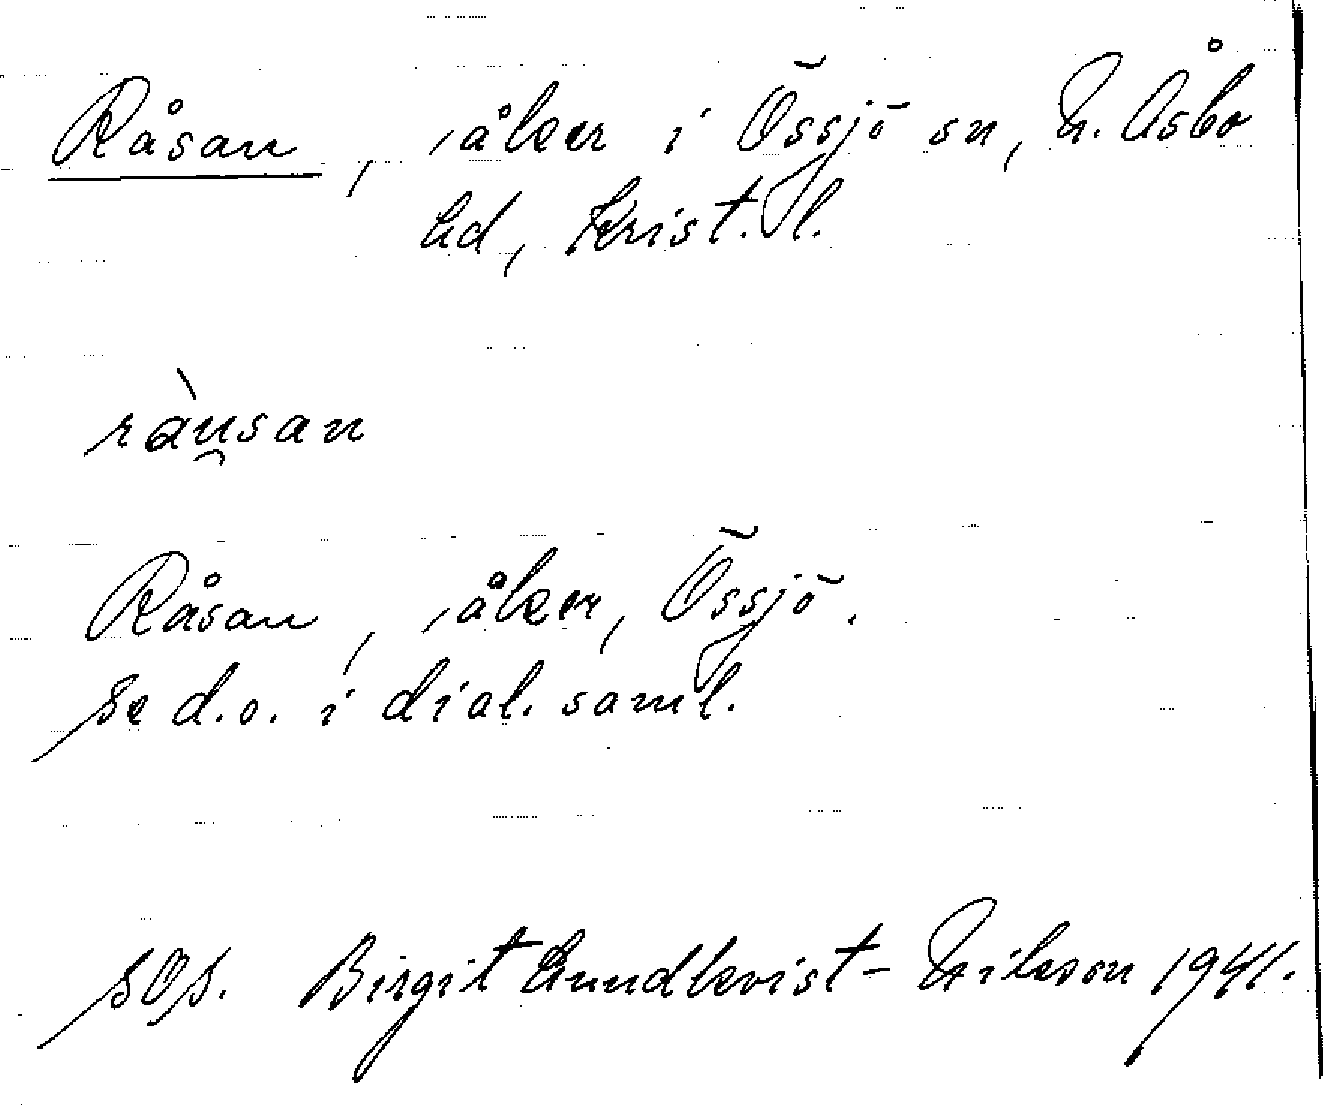 Råsan, åker i Össjö sn, N. Åsbo
hd, Krist. l.
ràu̯san
Råsan, åker, Össjö.
Se d.o. i dial. saml.
SOS. Birgit Lundkvist-Nilsson 1941.